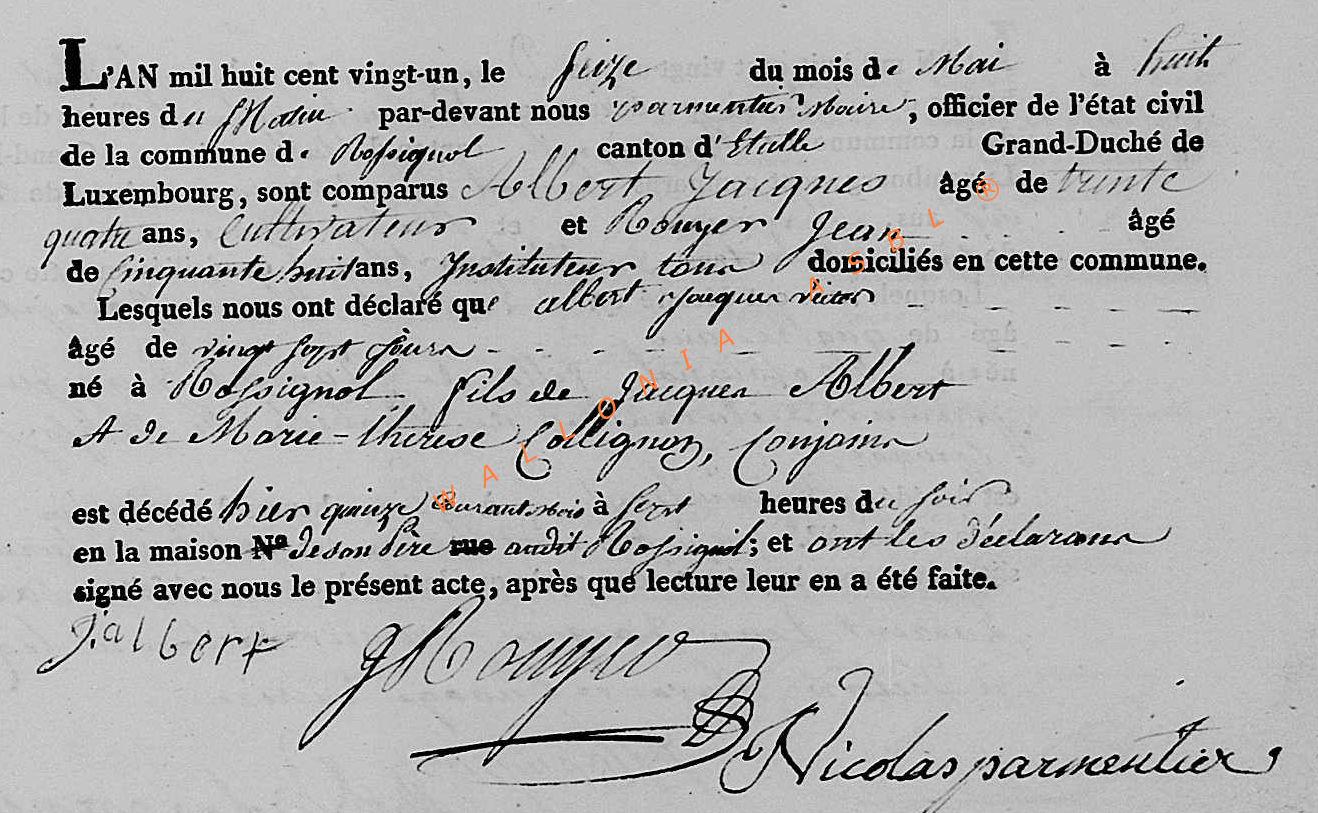 L'AN mil huit cent vingt-un, le seize du mois de Mai à huit
heures du Matin par-devant nous parmentier Maire, officier de l'état civil
de la commune de Rossignol canton d'Etalle Grand-Duché de
Luxembourg, sont comparus Albert Jacques âgé de trente
quatre ans, Cultivateur et Rouyer Jean âgé
de Cinquante huit ans, Instituteur tous domiciliés en cette commune.
Lesquels nous ont déclaré que albert Jacques victor
âgé de vingt sept jours
né à Rossignol fils de Jacques Albert
et de Marie-therese Collignon, Conjoins
est décédé hier quinze Courant mois à sept heures du soir
en la maison N° de son père rue audit Rossignol; et ont les déclarans
signé avec nous le présent acte, après que lecture leur en a été faite.
J. albert J Rouyer
Nicolas parmentier
WALLONIA ASBL ®